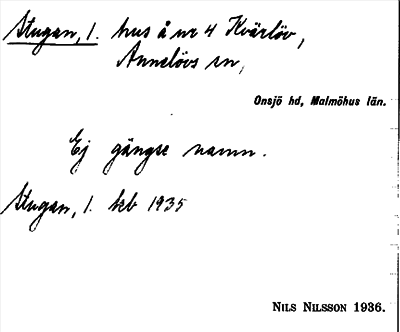 Stugan, 1. hus å nr 4 Kvärlöv,
Annelövs sn,
Onsjö hd, Malmöhus län.
Ej gängse namn.
Stugan, 1. kzb 1935
NILS NILSSON 1936.